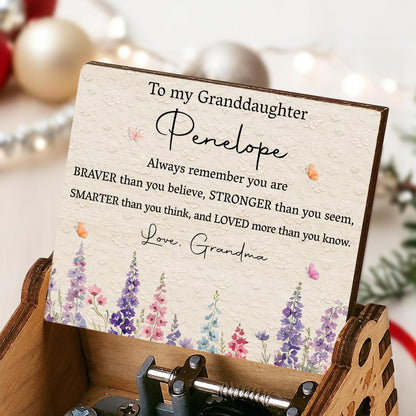 To my Granddaughter
Penelope
Always remember you are
BRAVER than you believe, STRONGER than you seem,
SMARTER than you think, and LOVED more than you know.
Love, Grandma